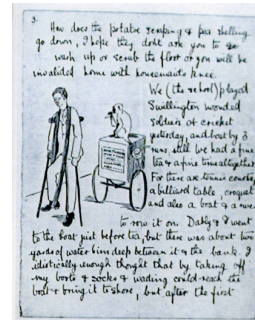 3.
How does the potatoe scraping & pea shelling
go down, I hope they dont ask you to
wash up or scrub the floor or you will be
invalided home with housemaids knee.
We (the school) played
Swillington wounded
soldiers at cricket
yesterday, and beat by 3
runs, still we had a fine
tea & a fine time altogether
For there are tennis courts,
a billiard table croquet
and also a boat & a
to row it on. Dably & I went
to the boat just before tea, but there was about two
yards of water him deep between it & the bank. I
idiotically enough thought that by taking off
my boots & socks & wading could reach the
boat & bring it to shore, but after the first